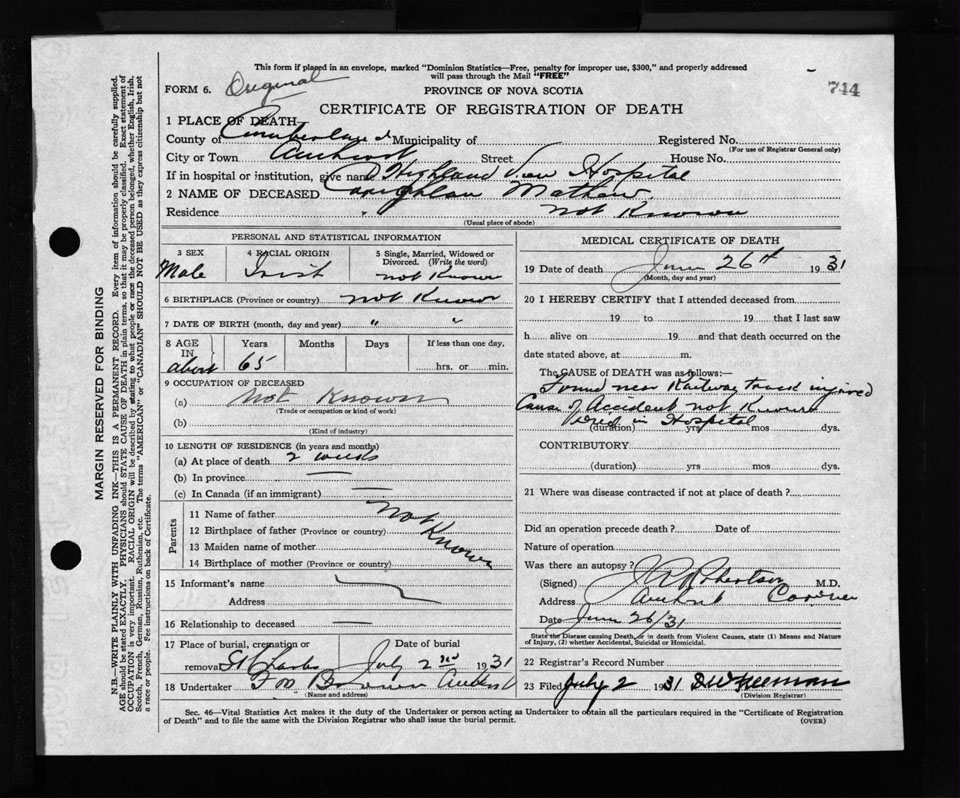 This form if placed in an envelope, marked "Dominion Statistics—Free, penalty for improper use, $300," and properly addressed
will pass through the Mail "FREE"
FORM 6. Original
PROVINCE OF NOVA SCOTIA
744
CERTIFICATE OF REGISTRATION OF DEATH
1 PLACE OF DEATH
County of Cumberland Municipality of Registered No.
(For use of Registrar General only)
City or Town Amherst Street House No.
If in hospital or institution, give name Highland View Hospital
2 NAME OF DECEASED Coughlan Mathew
Residence not Known
(Usual place of abode)
PERSONAL AND STATISTICAL INFORMATION
3 SEX 4 RACIAL ORIGIN 5 Single, Married, Widowed or Divorced. (Write the word)
Male Irish not Known
6 BIRTHPLACE (Province or country) not Known
7 DATE OF BIRTH (month, day and year) " "
8 AGE IN Years Months Days If less than one day,
about 65 hrs. or min.
9 OCCUPATION OF DECEASED
(a) Not Known
(Trade or occupation or kind of work)
(b)
(Kind of industry)
10 LENGTH OF RESIDENCE (in years and months)
(a) At place of death 2 weeks
(b) In province —
(c) In Canada (if an immigrant) —
Parents
11 Name of father Not
12 Birthplace of father (Province or country) Known
13 Maiden name of mother
14 Birthplace of mother (Province or country)
15 Informant's name
Address
16 Relationship to deceased —
17 Place of burial, cremation or removal Date of burial
St Charles July 2nd 1931
18 Undertaker Brown Amherst
(Name and address)
MEDICAL CERTIFICATE OF DEATH
19 Date of death June 26th 1931
(Month, day and year)
20 I HEREBY CERTIFY that I attended deceased from
19 to 19 that I last saw
h alive on 19 and that death occurred on the
date stated above, at m.
The CAUSE of DEATH was as follows:—
Found near Railway track injured
Cause of Accident not Known
Died in Hospital
(duration) yrs mos dys.
CONTRIBUTORY
(duration) yrs mos dys.
21 Where was disease contracted if not at place of death?
Did an operation precede death? Date of
Nature of operation
Was there an autopsy?
(Signed) J A Robertson M.D.
Address Amherst Coroner
Date June 26/31
State the Disease causing Death, or in death from Violent Causes, state (1) Means and Nature
of Injury, (2) whether Accidental, Suicidal or Homicidal.
22 Registrar's Record Number
23 Filed July 2 1931 Freeman
(Division Registrar)
Sec. 46—Vital Statistics Act makes it the duty of the Undertaker or person acting as Undertaker to obtain all the particulars required in the "Certificate of Registration
of Death" and to file the same with the Division Registrar who shall issue the burial permit.
(OVER)
MARGIN RESERVED FOR BINDING
N.B.—WRITE PLAINLY WITH UNFADING INK—THIS IS A PERMANENT RECORD. Every item of information should be carefully supplied.
AGE should be stated EXACTLY. PHYSICIANS should STATE CAUSE OF DEATH in plain terms, so that it may be properly classified. Exact statement of
OCCUPATION is very important. RACIAL ORIGIN will be described by stating to what people or race the deceased person belonged, whether English, Irish,
Scotch, French, German, Russian, Ruthenian, etc. The terms "AMERICAN" or "CANADIAN" SHOULD NOT BE USED as they express citizenship but not
a race or people. Fee instructions on back of Certificate.